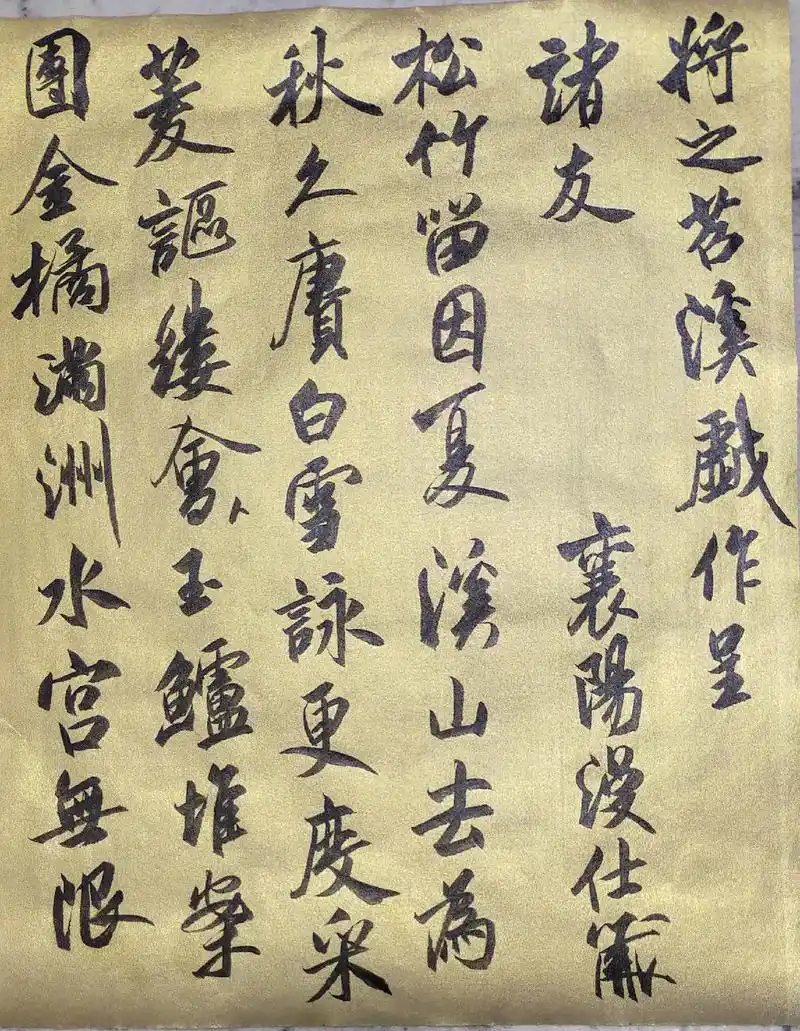 將之苕溪戲作呈
諸友 襄陽漫仕黻
松竹留因夏溪山去為
秋久賡白雪詠更度采
菱謳縷會卜玉鱸堆案
團金橘滿洲水宮無限